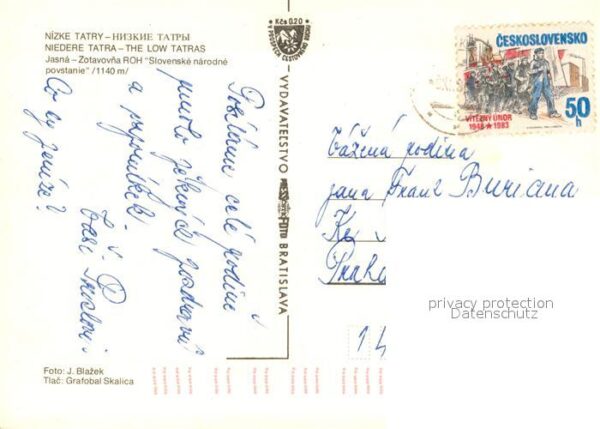 NÍZKE TATRY – НИЗКИЕ ТАТРЫ
NIEDERE TATRA – THE LOW TATRAS
Jasná – Zotavovňa ROH "Slovenské národné
povstanie" /1140 m/
Kčs 0,20
V PROSPECH CESTOVNÉHO RUCHU
VYDAVATEĽSTVO
BRATISLAVA
Posíláme celé rodině
mnoho pěkných pozdravů
a
Co
Vaši
Foto: J. Blažek
Tlač: Grafobal Skalica
ČESKOSLOVENSKO
VÍTĚZNÝ ÚNOR
1948 ★ 1983
50 h
Vážená rodina
pana Franz Buriana
Praha
14
privacy protection
Datenschutz